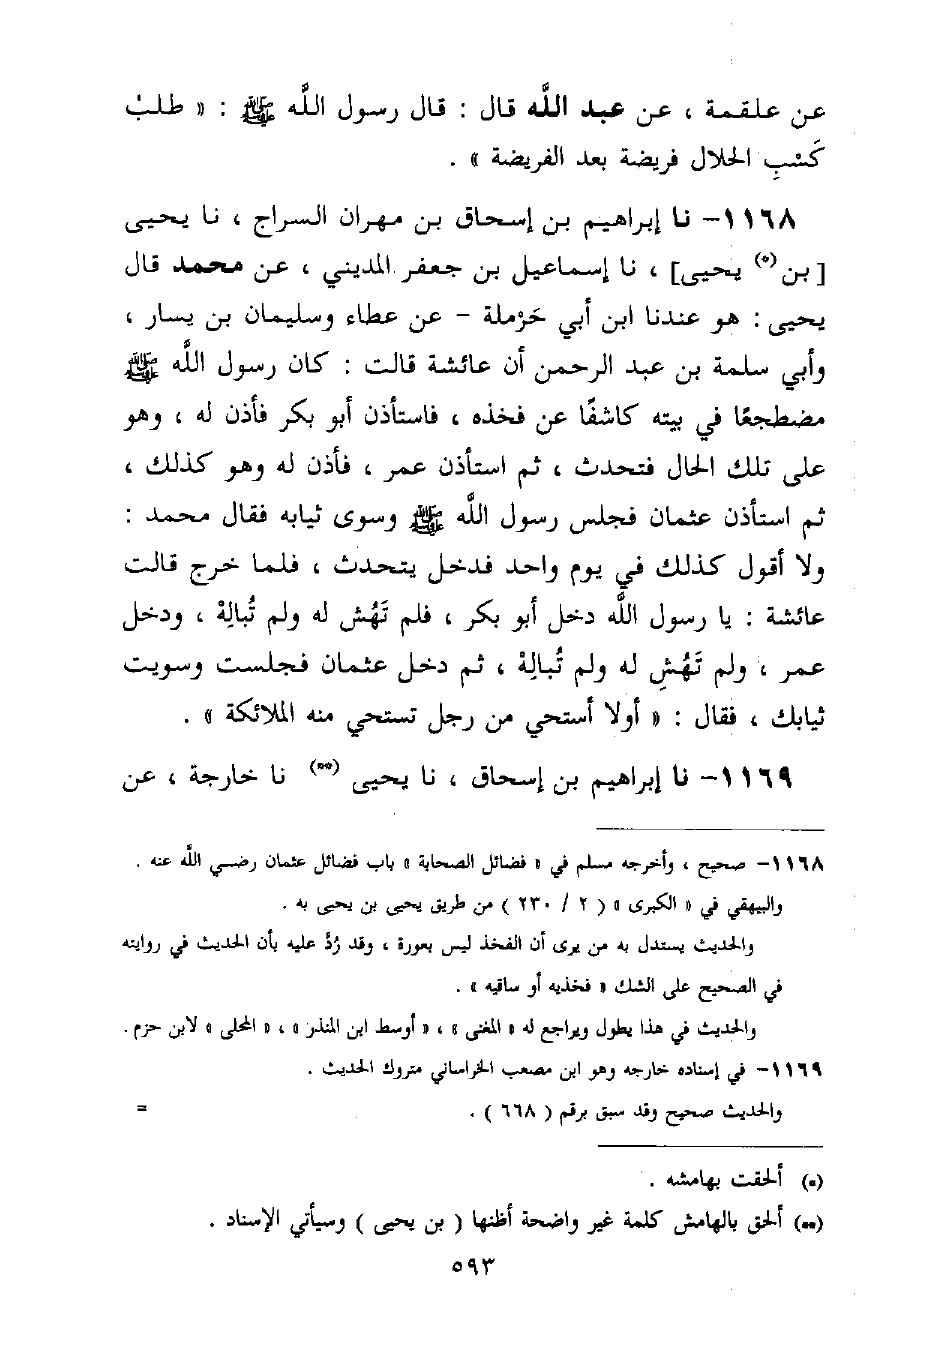 عن علقمة ، عن عبد اللَّه قال : قال رسول اللَّه ﷺ : « طلبُ
كَسْبِ الحلال فريضة بعد الفريضة » .
١١٦٨- نا إبراهيم بن إسحاق بن مهران السراج ، نا يحيى
[ بن(*) يحيى] ، نا إسماعيل بن جعفر المديني ، عن محمد قال
يحيى : هو عندنا ابن أبي حَرْملة - عن عطاء وسليمان بن يسار ،
وأبي سلمة بن عبد الرحمن أن عائشة قالت : كان رسول اللَّه ﷺ
مضطجعًا في بيته كاشفًا عن فخذه ، فاستأذن أبو بكر فأذن له ، وهو
على تلك الحال فتحدث ، ثم استأذن عمر ، فأذن له وهو كذلك ،
ثم استأذن عثمان فجلس رسول اللَّه ﷺ وسوى ثيابه فقال محمد :
ولا أقول كذلك في يوم واحد فدخل يتحدث ، فلما خرج قالت
عائشة : يا رسول اللَّه دخل أبو بكر ، فلم تَهُش له ولم تُبالِهْ ، ودخل
عمر ، ولم تَهُشِ له ولم تُبالِهْ ، ثم دخل عثمان فجلست وسويت
ثيابك ، فقال : « أولا أستحي من رجل تستحي منه الملائكة » .
١١٦٩- نا إبراهيم بن إسحاق ، نا يحيى (**) نا خارجة ، عن
١١٦٨- صحيح ، وأخرجه مسلم في « فضائل الصحابة » باب فضائل عثمان رضي اللَّه عنه .
والبيهقي في « الكبرى » ( ٢ / ٢٣٠ ) من طريق يحيى بن يحيى به .
والحديث يستدل به من يرى أن الفخذ ليس بعورة ، وقد رُدَّ عليه بأن الحديث في روايته
في الصحيح على الشك « فخذيه أو ساقيه » .
والحديث في هذا يطول ويراجع له « المغنى » ، « أوسط ابن المنذر » ، « المحلى » لابن حزم .
١١٦٩- في إسناده خارجه وهو ابن مصعب الخراساني متروك الحديث .
والحديث صحيح وقد سبق برقم ( ٦٦٨ ) . =
(*) ألحقت بهامشه .
(**) ألحق بالهامش كلمة غير واضحة أظنها ( بن يحيى ) وسيأتي الإسناد .
٥٩٣